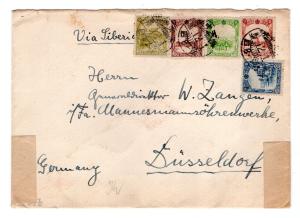 Via Siberia
Herrn
Generaldirektor W. Zangen,
i/Fa. Mannesmannröhrenwerke,
Düsseldorf
Germany